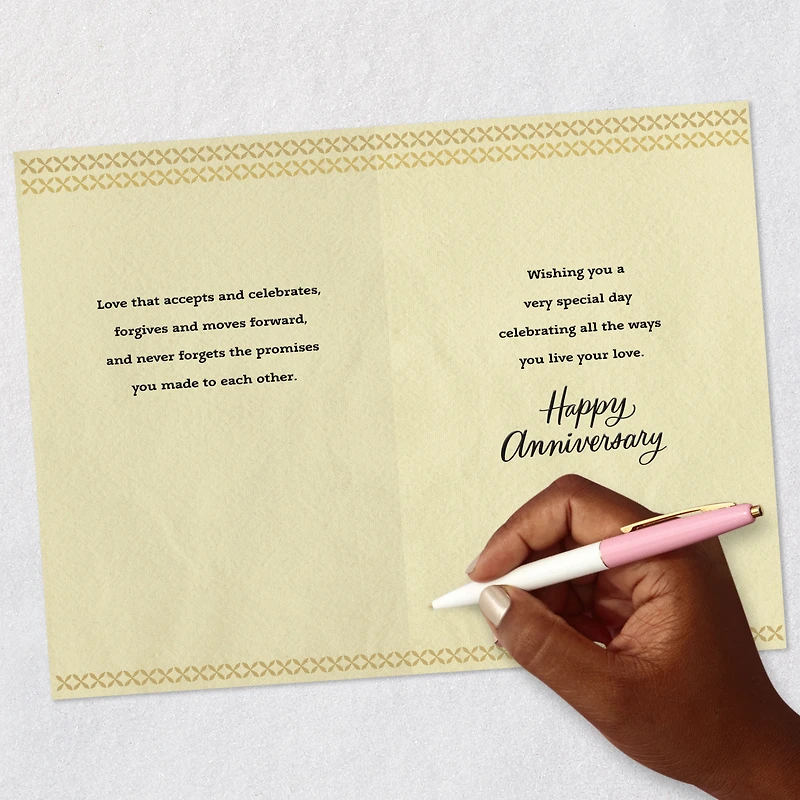 Love that accepts and celebrates,
forgives and moves forward,
and never forgets the promises
you made to each other.
Wishing you a
very special day
celebrating all the ways
you live your love.
Happy
Anniversary